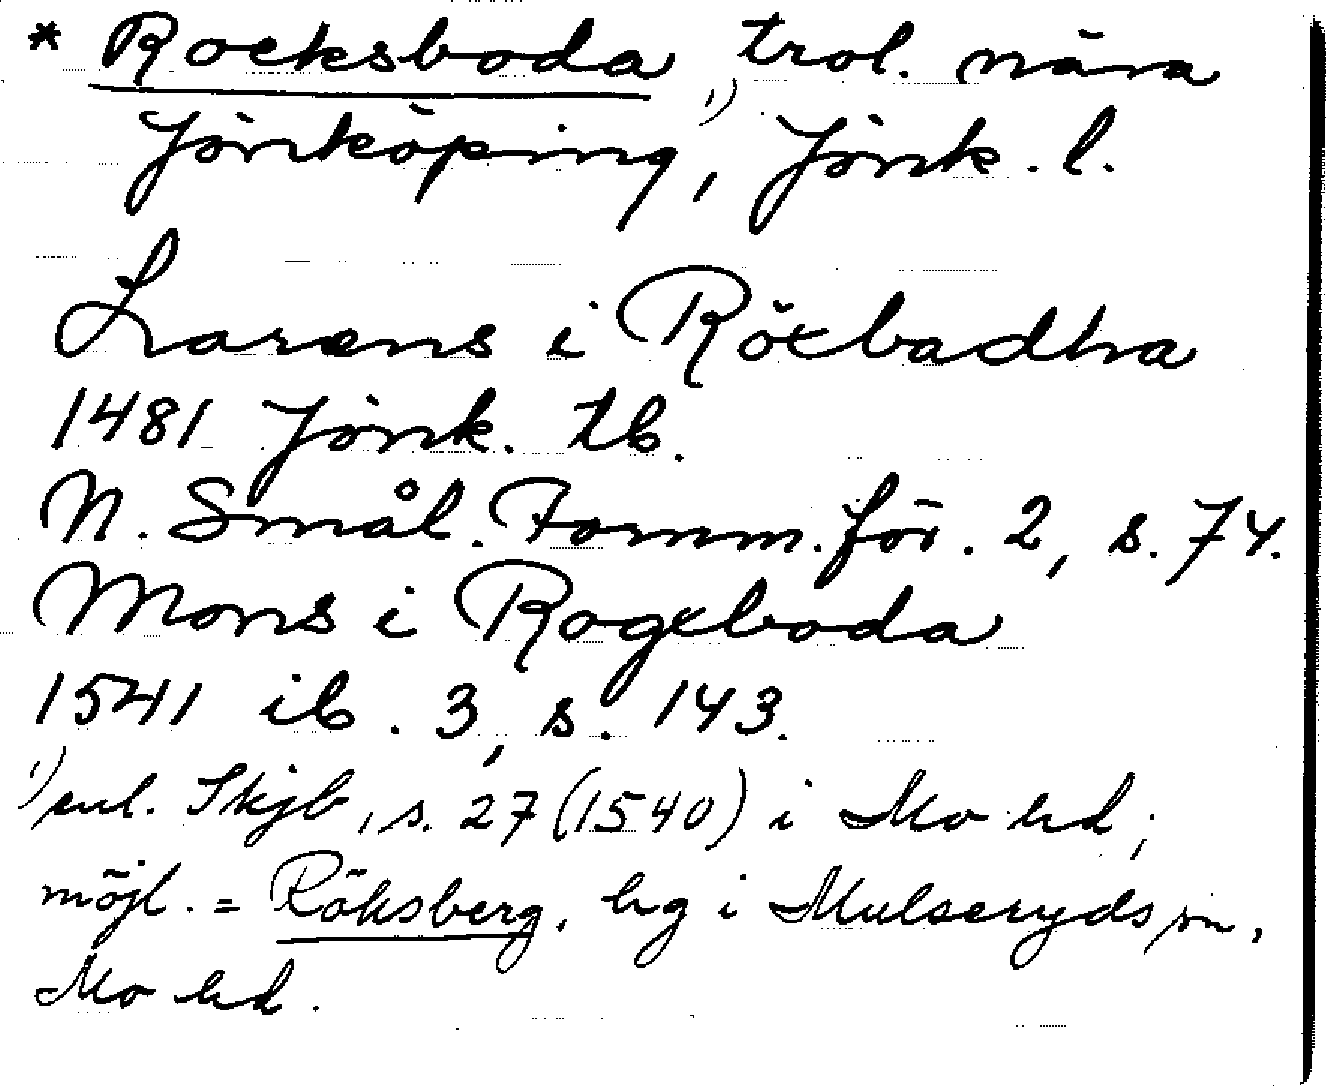 * Rocksboda trol. nära
Jönköping¹⁾, Jönk. l.
Larens i Röxbadha
1481 Jönk. tb.
N. Smål. Fornm.för. 2, s. 74.
Mons i Rogxboda
1541 ib. 3, s. 143.
¹⁾ enl. Skjb, s. 27 (1540) i Mo hd;
möjl. = Röksberg, hg i Mulseryds sn,
Mo hd.